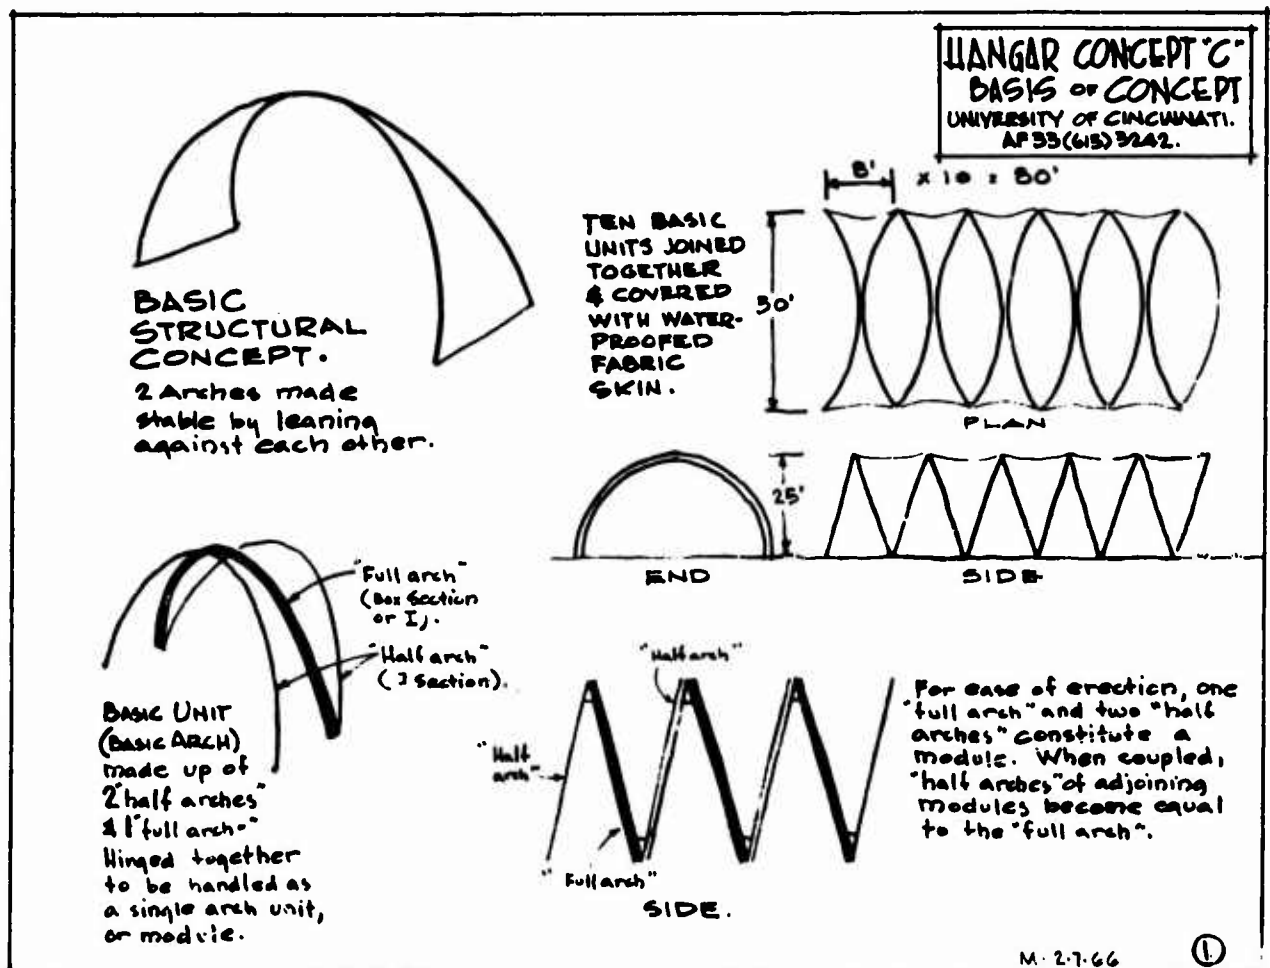 HANGAR CONCEPT "C"
BASIS OF CONCEPT
UNIVERSITY OF CINCINNATI.
AF 33(615) 3242.
BASIC
STRUCTURAL
CONCEPT.
2 Arches made
stable by leaning
against each other.
TEN BASIC
UNITS JOINED
TOGETHER
& COVERED
WITH WATER-
PROOFED
FABRIC
SKIN.
8' x 10 = 80'
50'
PLAN
25'
END
SIDE
"Full arch"
(Box Section
or I).
"Half arch"
(J Section).
BASIC UNIT
(BASIC ARCH)
made up of
2 "half arches"
& 1 "full arch"
Hinged together
to be handled as
a single arch unit,
or module.
"Half arch"
"Half
arch"
"Full arch"
SIDE.
For ease of erection, one
"full arch" and two "half
arches" constitute a
module. When coupled,
"half arches" of adjoining
modules become equal
to the "full arch".
M. 2.7.66
1